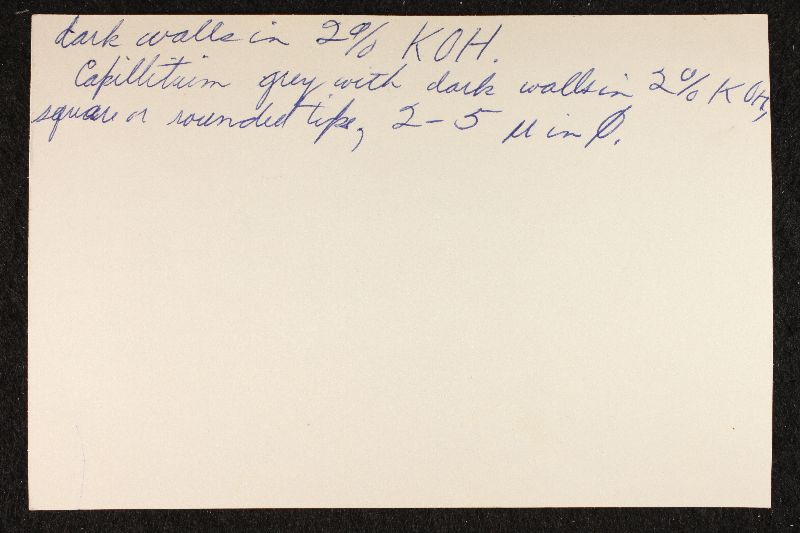 dark walls in 2% KOH.
Capillitium grey with dark walls in 2% KOH,
square or rounded tips, 2-5 µ in Ø.